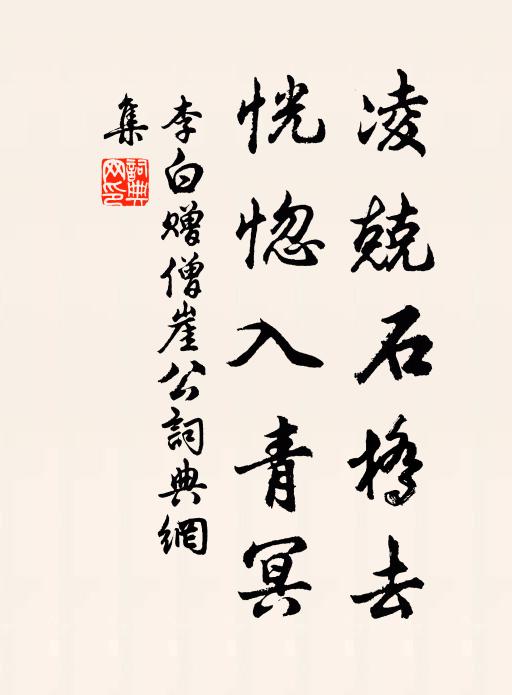 凌兢石橋去
恍惚入青冥
李白贈僧崖公詞典網
集
詞典網印